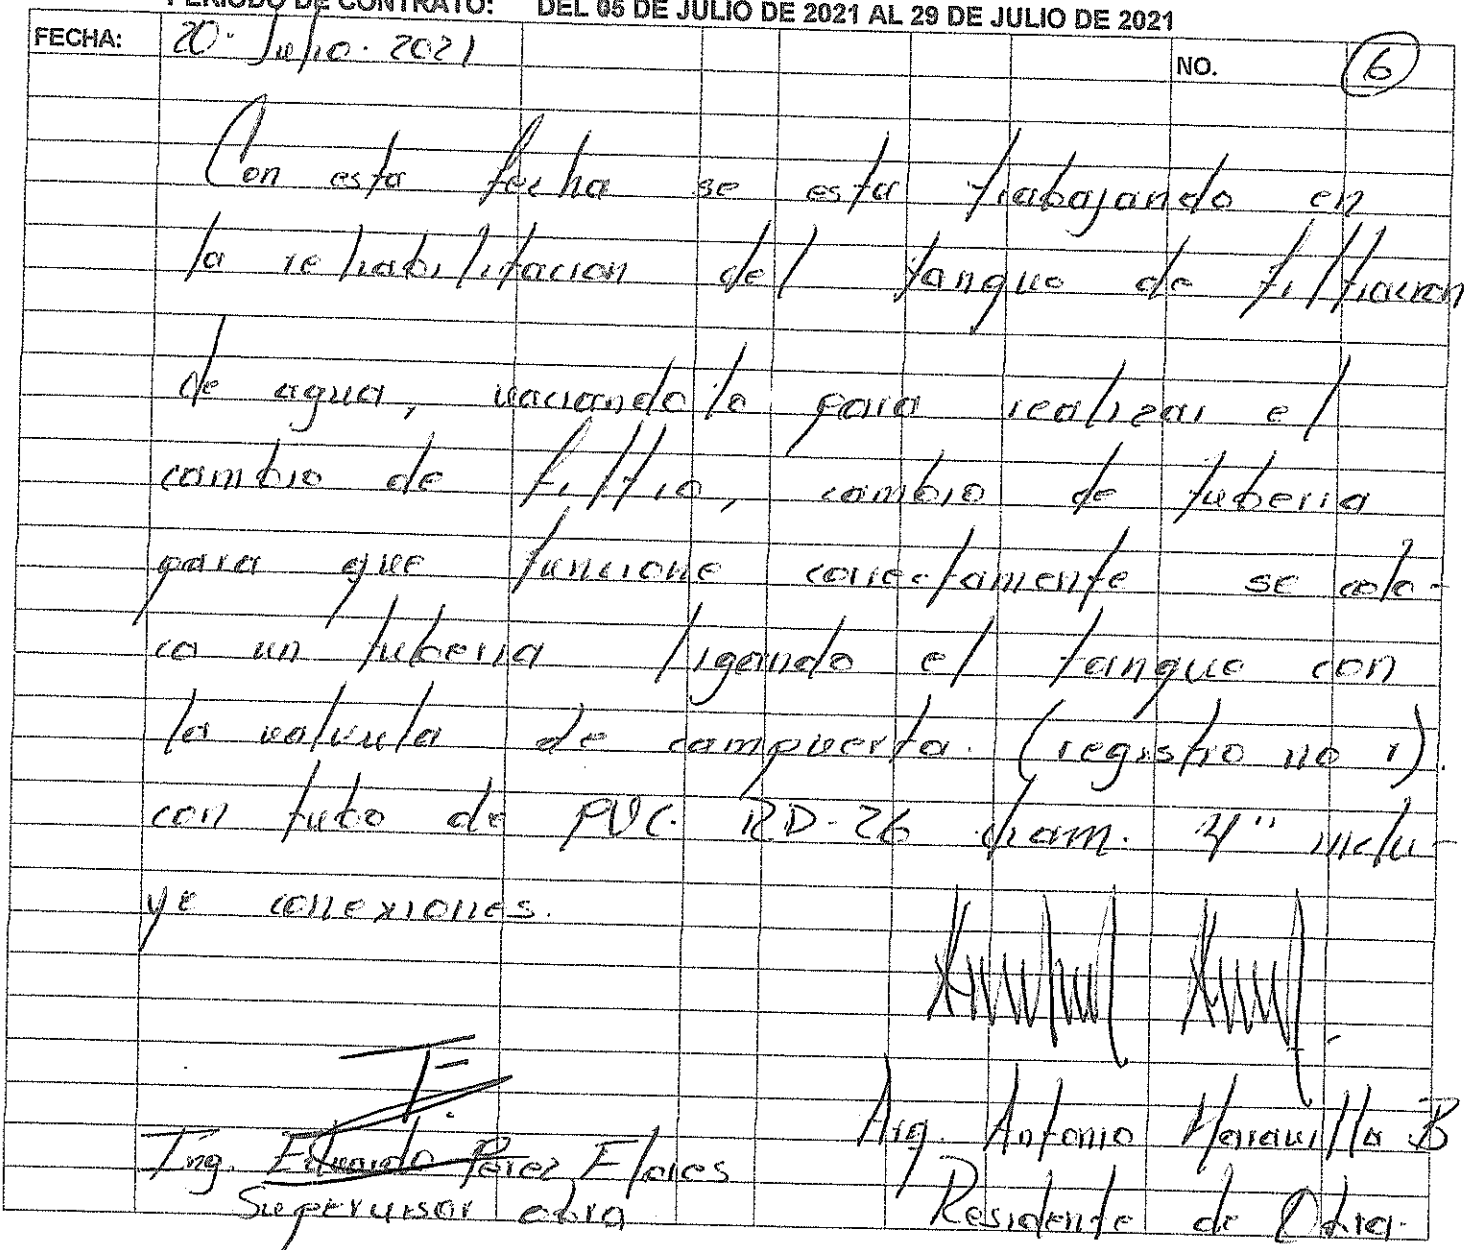 PERIODO DE CONTRATO: DEL 05 DE JULIO DE 2021 AL 29 DE JULIO DE 2021
FECHA: 20. Julio. 2021 NO. 6
Con esta fecha se esta trabajando en
la rehabilitacion del tanque de filtracion
de agua, vaciandolo para realizar el
cambio de filtro, cambio de tuberia
para que funcione correctamente se colo-
ca un tuberia ligando el tanque con
la valvula de compuerta. (registro no 1).
con tubo de PVC. RD-26 diam. 4" inclu-
ye conexiones.
Ing. Eduardo Pérez Flores
Supervisor obra
Arq. Antonio Maravilla B
Residente de Obra.